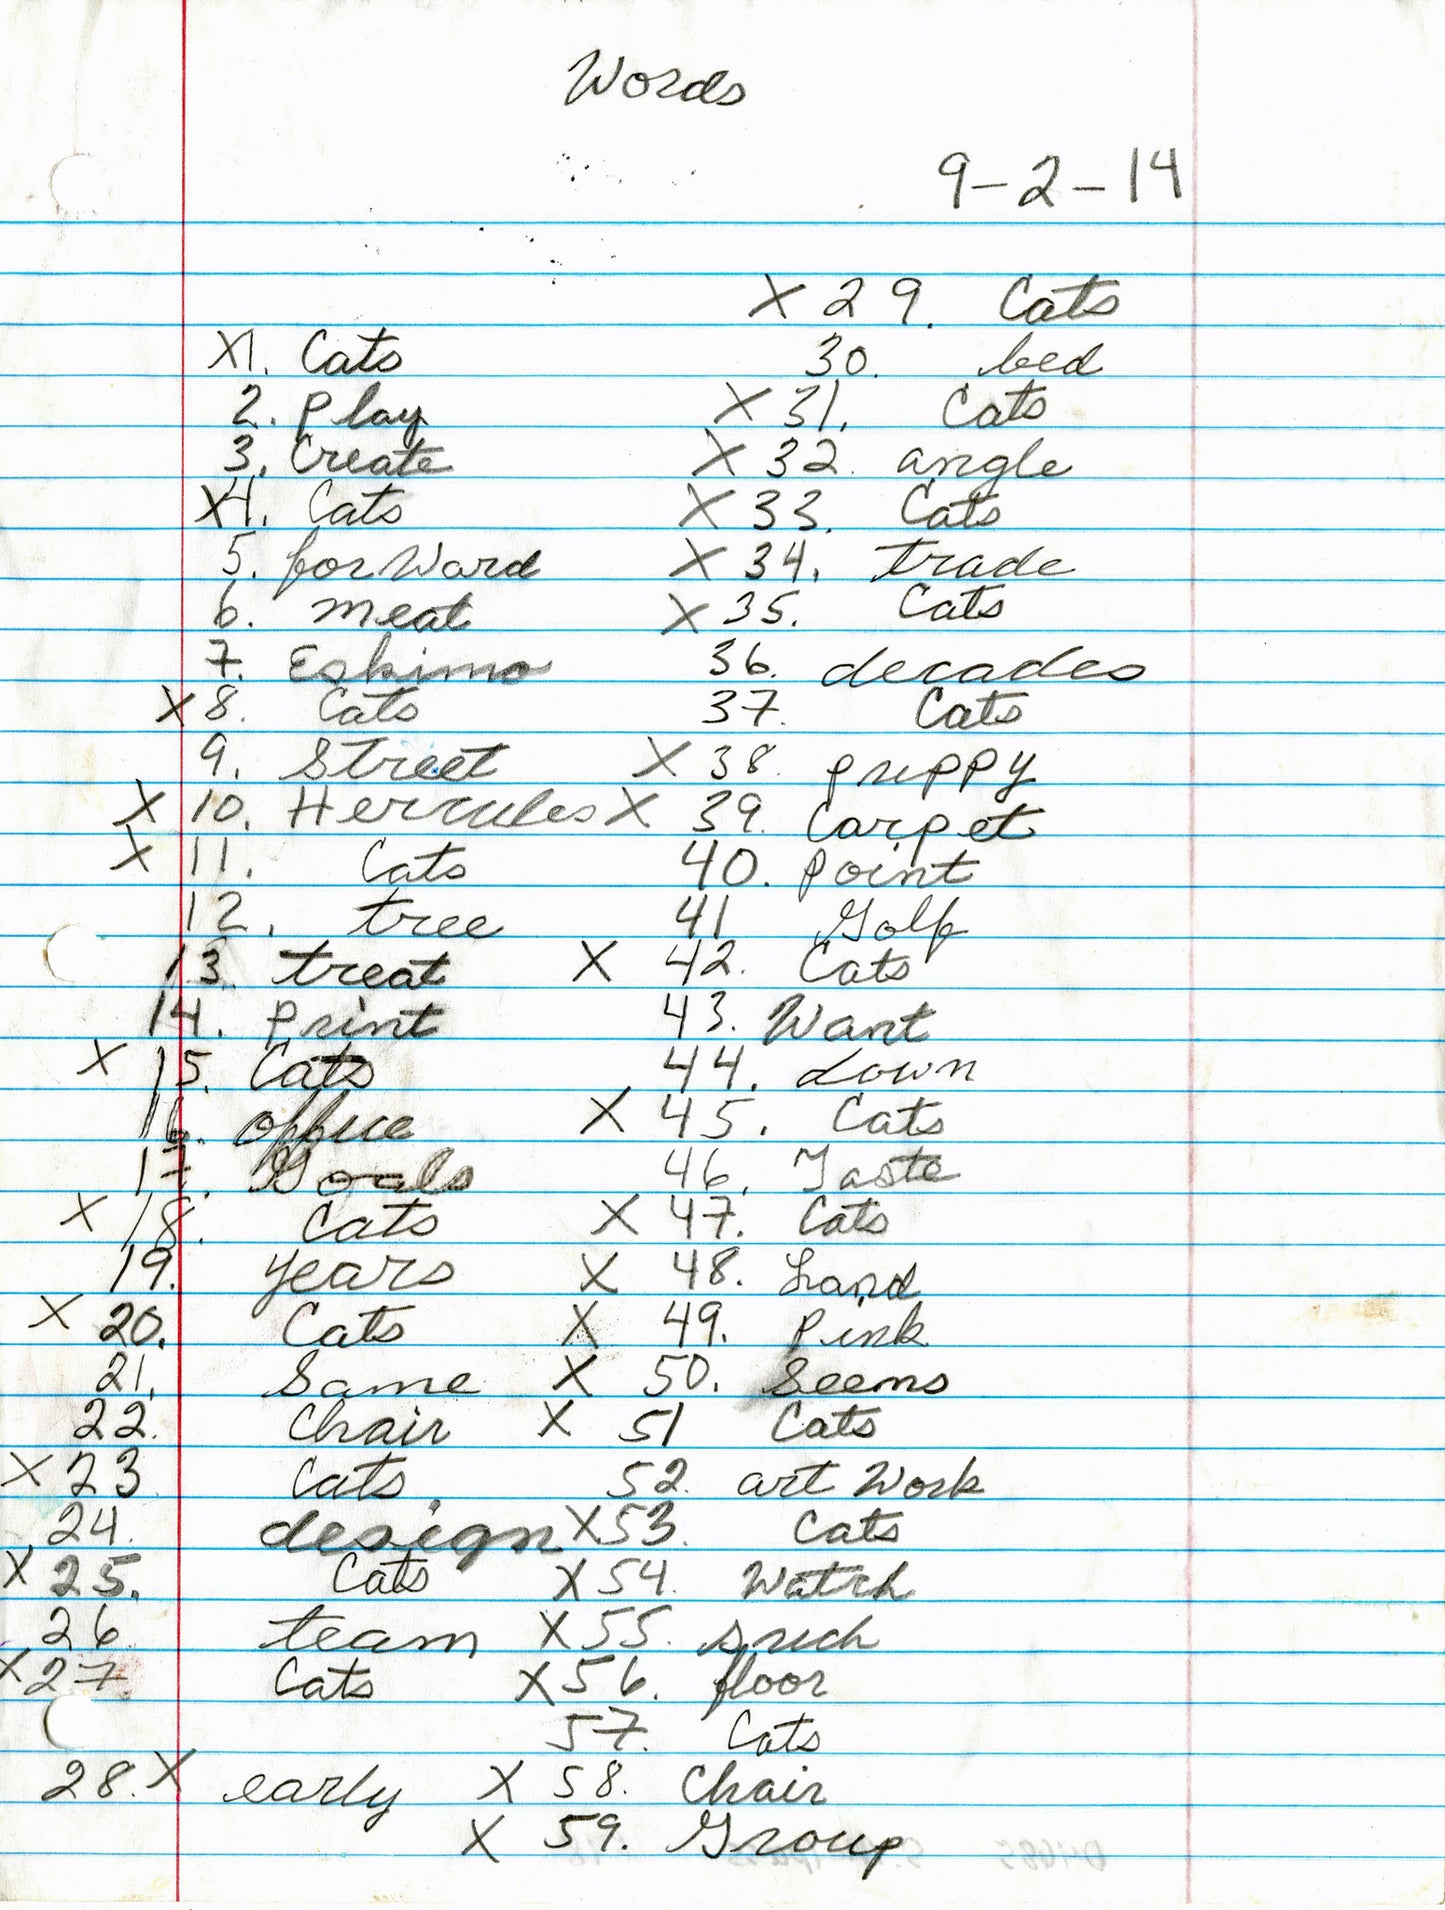 Words
9-2-14
X1. Cats
2. play
3. Create
X4. Cats
5. forWard
6. meat
7. Eskimo
X 8. Cats
9. Street
X 10. Hercules
X 11. Cats
12. tree
13. treat
14. print
X 15. Cats
16. office
17. Goals
X 18. Cats
19. years
X 20. Cats
21. Same
22. Chair
X 23 Cats
24. design
X 25. Cats
26 team
X 27. Cats
28. X early
X 29. Cats
30. bed
X 31. Cats
X 32. angle
X 33. Cats
X 34. trade
X 35. Cats
36. decades
37. Cats
X 38. puppy
X 39. Carpet
40. point
41 Golf
X 42. Cats
43. Want
44. down
X 45. Cats
46. Taste
X 47. Cats
X 48. hand
X 49. Pink
X 50. Seems
X 51 Cats
52. art Work
X 53. Cats
X 54. Watch
X 55. such
X 56. floor
57. Cats
X 58. Chair
X 59. Group